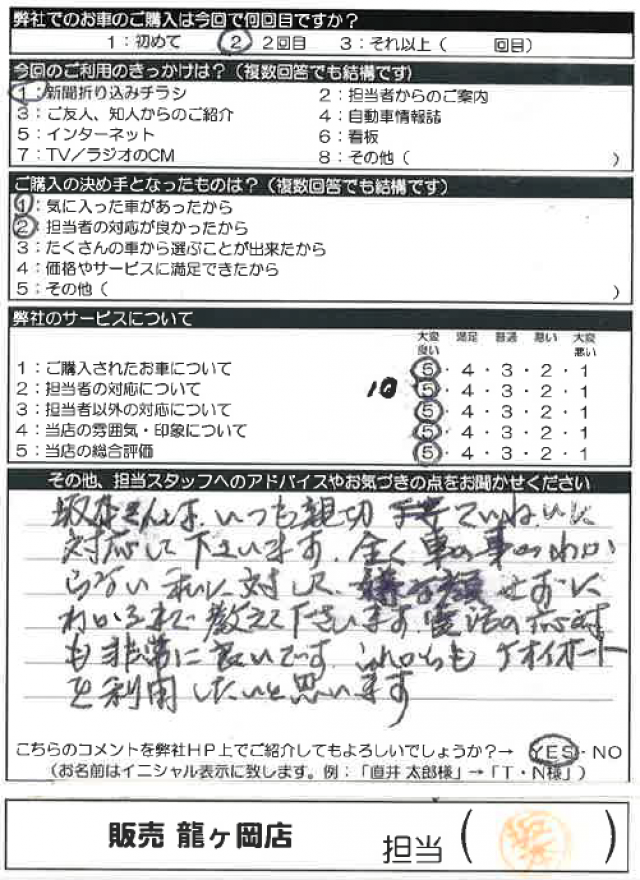 弊社でのお車のご購入は今回で何回目ですか？
1：初めて 2 2回目 3：それ以上（ 回目）
今回のご利用のきっかけは？（複数回答でも結構です）
1：新聞折り込みチラシ 2：担当者からのご案内
3：ご友人、知人からのご紹介 4：自動車情報誌
5：インターネット 6：看板
7：TV／ラジオのCM 8：その他（ ）
ご購入の決め手となったものは？（複数回答でも結構です）
1：気に入った車があったから
2：担当者の対応が良かったから
3：たくさんの車から選ぶことが出来たから
4：価格やサービスに満足できたから
5：その他（ ）
弊社のサービスについて
大変良い 満足 普通 悪い 大変悪い
1：ご購入されたお車について 5・4・3・2・1
2：担当者の対応について 10 5・4・3・2・1
3：担当者以外の対応について 5・4・3・2・1
4：当店の雰囲気・印象について 5・4・3・2・1
5：当店の総合評価 5・4・3・2・1
その他、担当スタッフへのアドバイスやお気づきの点をお聞かせください
さんは、いつも親切 ていねいに
対応して下さいます。全く車の事のわか
らない私に対して、嫌な顔せずに
わかるまで教えて下さいます。電話の応対
も非常に良いです。これからもケイオイオート
を利用したいと思います
こちらのコメントを弊社HP上でご紹介してもよろしいでしょうか？→ YES・NO
（お名前はイニシャル表示に致します。例：「直井 太郎様」→「T・N様」）
販売 龍ヶ岡店 担当（ ）